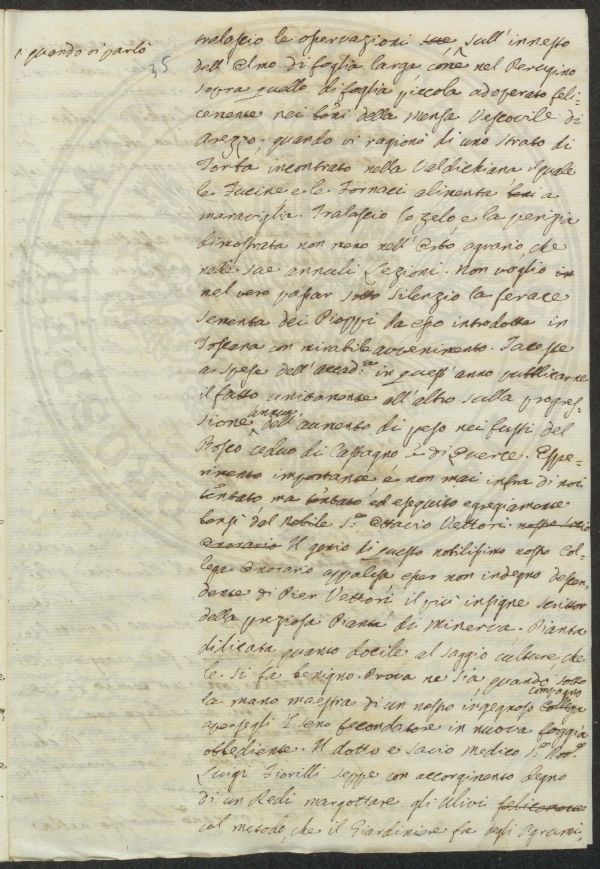 ^ quando vi parlò
35
tralascio le osservazioni sue sull'innesto
dell'Olmo di foglia larga come^ nel Perugino
sopra quello di foglia piccola adoperato feli-
cemente nei boni della mensa Vescovile di
Arezzo; quando vi ragionò di uno strato di
Torba incontrato nella Valdichiana il quale
le Fucine e le Fornaci alimenta a
maraviglia. Tralascio lo zelo e la perizia
dimostrata non meno nell'Orto agrario, che
nelle sue annuali Lezioni. Non voglio in
nel vero passar sotto silenzio la ferace
sementa dei Pioppi da esso introdotta in
Toscana con mirabile avvenimento. Faceste
a spese dell'accad.ca in quest'anno pubblicarne
il fatto unitamente all'altro sulla progres-
sione annua dell'aumento di peso nei fusti del
Bosco ceduo di Castagno e di Querce. Espe-
rimento importante è non mai infra di noi
tentato ma tentato ed eseguito egregiamente
bensì dal nobile S.r Ottavio Vettori nostro Socio
Onorario Il genio di questo nobilissimo nostro Col-
lega Onorario appalesa esser non indegno descen-
dente di Pier Vettori il più insigne scrittor
della preziosa Pianta di Minerva. Pianta
dilicata quanto docile al saggio cultore, che
le si fà benigno. Prova ne sia quando sotto
la mano maestra di un nostro ingegnoso Collega compagno
aperse gli il seno fecondatore in nuova foggia
obbediente. Il dotto e savio medico S.r Dott.r
Luigi Fiorilli seppe con accorgimento degno
di un Redi margottare gli Ulivi felicemente
col metodo, che il Giardiniere fa degli Agrumi,